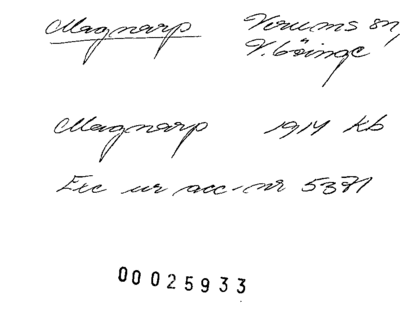 Magnarp Verums sn,
V. Göinge
Magnarp 1914 kb
Exc ur acc.nr 5371
00025933